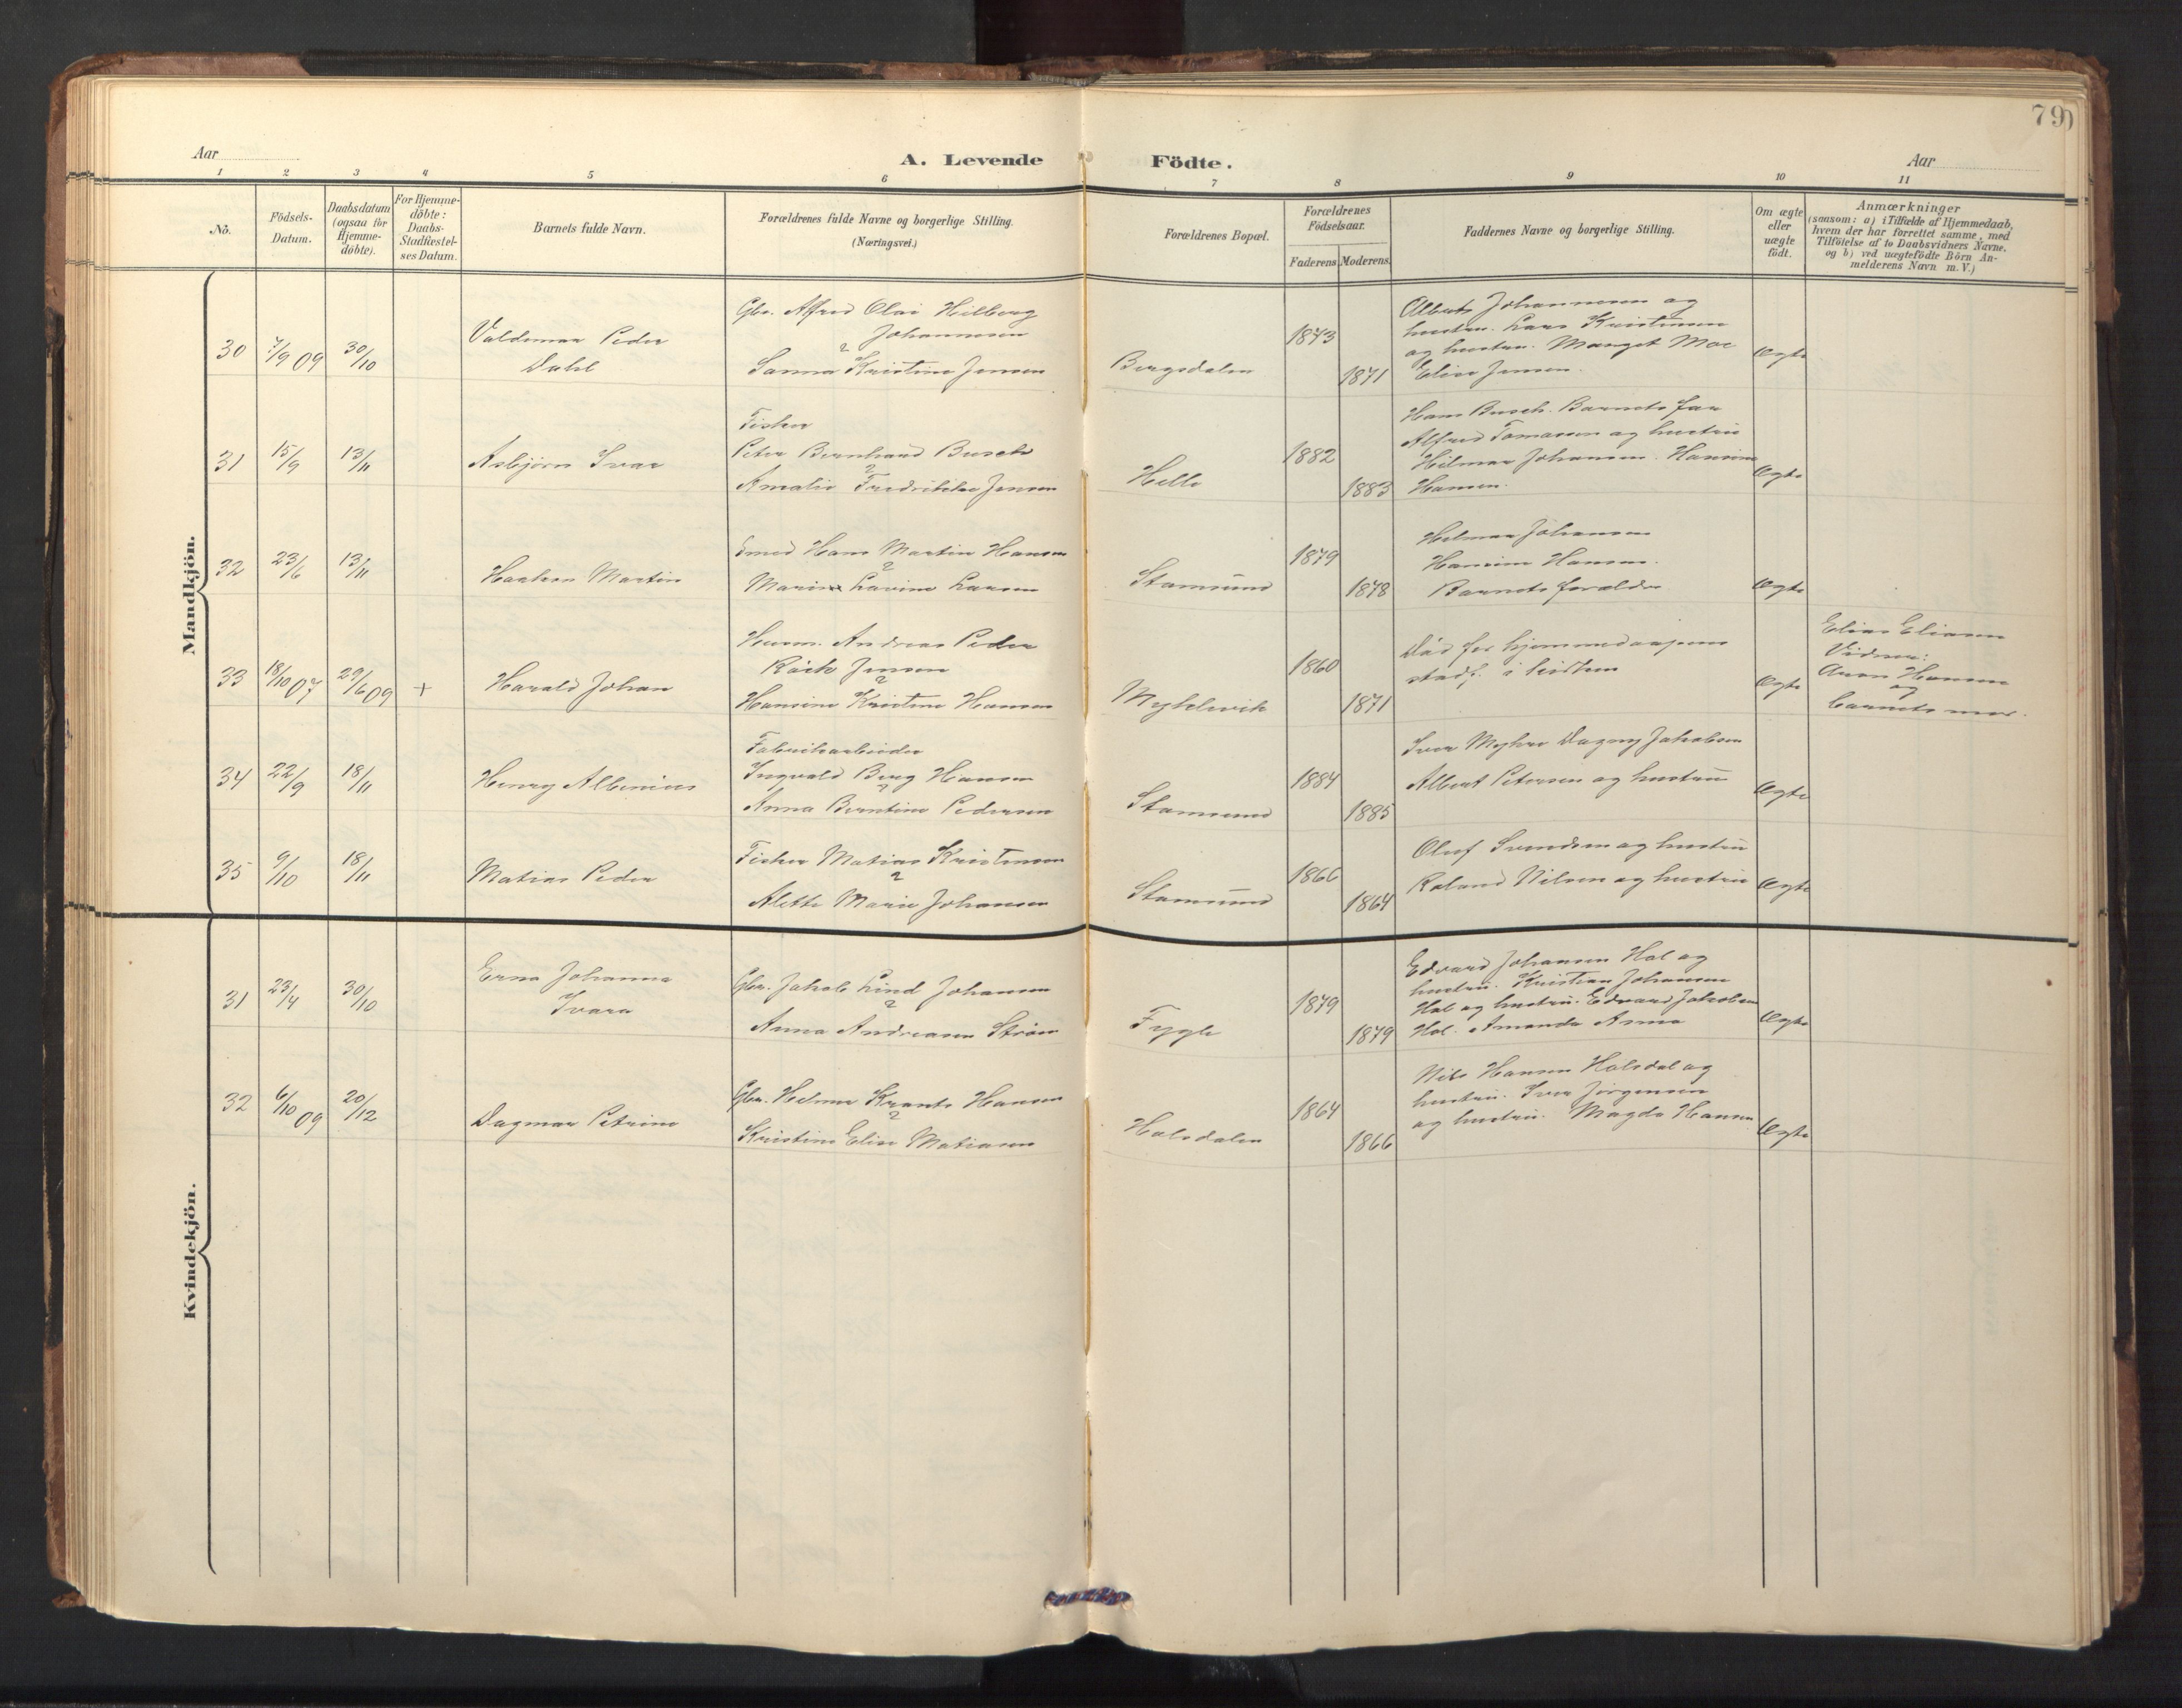 79
Aar
A. Levende Födte.
Aar
1 2 3 4 5 6 7 8 9 10 11
No.
Födsels-Datum.
Daabsdatum (ogsaa for Hjemme-döbte).
For Hjemme-döbte: Daabs-Stadfæstel-ses Datum.
Barnets fulde Navn.
Forældrenes fulde Navne og borgerlige Stilling.
(Næringsvei.)
Forældrenes Bopæl.
Forældrenes Födselsaar.
Faderens Moderens.
Faddernes Navne og borgerlige Stilling.
Om ægte eller uægte födt.
Anmærkninger
(saasom: a) i Tilfælde af Hjemmedaab, hvem der har forrettet samme, med Tilföielse af to Daabsvidners Navne, og b) ved uægtefödte Börn An-melderens Navn m. V.)
Mandkjön.
30 7/9 09 30/10
Valdemar Peder
Dahl
Gbr. Alfred Olai Hilberg
Johannesen
2
Sanna Kristine Jensen
Bergsdalen
1873
1871
Albert Johannesen og
hustru. Lars Kristensen
og hustru. Marget Moe
Elise Jensen.
Ægte
31 15/9 13/11
Asbjørn Ivar
Fisker
Peter Bernhard Busch
2
Amalie Fredrikke Jensen
Helle
1882
1883
Hans Busch. Barnets far
Alfred Tomassen og hustru
Hilmar Johansen. Hansine
Hansen.
Ægte
32 23/6 13/11
Haakon Martin
Smed Hans Martin Hansen
2
Marie Lavine Larsen
Stamsund
1879
1878
Helmer Johansen
Hansine Hansen.
Barnets forældre
Ægte
33 18/10 07 29/6 09 +
Harald Johan
Husm. Andreas Peder
Røick Jensen
2
Hansine Kristine Hansen
Myklevik
1860
1871
Død før hjemmedaapens
stadf. i kirken
Ægte
Elias Eliasen
Vidner:
Aron Hansen
og
barnets mor.
34 22/9 18/11
Henry Albinius
Fabrikarbeider
Ingvald Berg Hansen
2
Anna Berntine Pedersen
Stamsund
1884
1885
Iver Myhre Dagny Jakobsen
Albert Petersen og hustru
Ægte
35 9/10 18/11
Matias Peder
Fisker Matias Kristensen
2
Alette Marie Johansen
Stamsund
1866
1864
Oluf Svendsen og hustru
Roland Nilsen og hustru
Ægte
Kvindekjön.
31 23/4 30/10
Erna Johanna
Ivara
Gbr. Jakob Lind Johansen
2
Anna Andreasen Strøm
Fygle
1879
1879
Edvard Johansen Hol og
hustru. Kristian Johansen
Hol og hustru. Edvard Jakobsen
Hol. Amanda Anna
Ægte
32 6/10 09 20/12
Dagmar Petrine
Gbr. Helmer Krantz Hansen
2
Kristine Elise Matiasen
Holsdalen
1864
1866
Nils Hansen Holsdal og
hustru. Iver Jørgensen
og hustru. Magda Hansen
Ægte